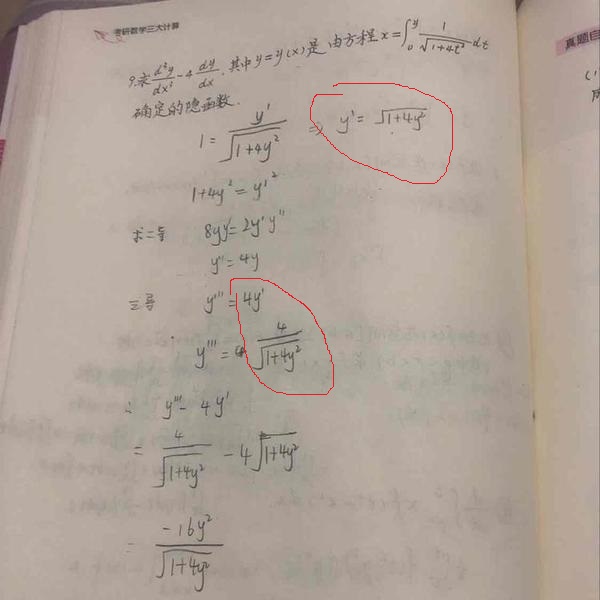 考研数学三大计算
真题自
9.求 d³y/dx³ - 4 dy/dx. 其中 y=y(x) 是由方程 x=∫₀^y 1/√(1+4t²) dt
确定的隐函数.
1 = y'/√(1+4y²) ⇒ y' = √(1+4y²)
1+4y² = y'²
求二导 8yy' = 2y'y''
y'' = 4y
三导 y''' = 4y'
y''' = 4/√(1+4y²)
∴ y''' - 4y'
= 4/√(1+4y²) - 4√(1+4y²)
= -16y²/√(1+4y²)